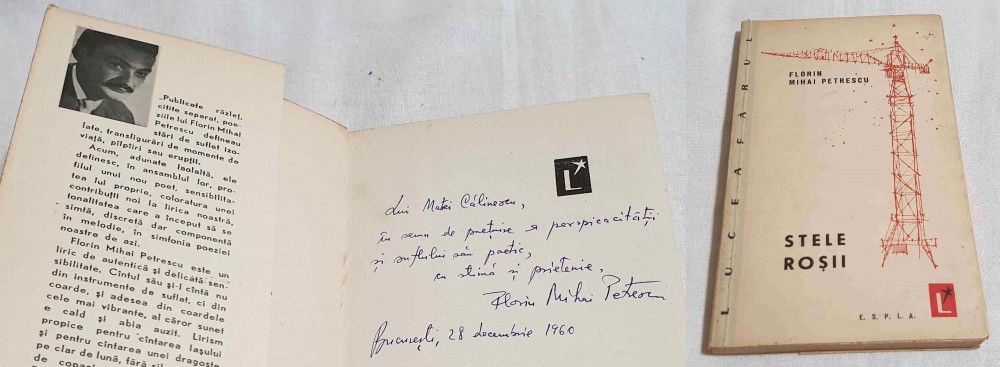 „Publicate răzleț,
citite separat, poe-
ziile lui Florin Mihai
Petrescu defineau
stări de suflet izo-
late, transfigurări de momente de
viață, pîlpîiri sau erupții.
Acum, adunate laolaltă, ele
definesc, în ansamblul lor, pro-
filul unui nou poet, sensibilita-
tea lui proprie, coloratura unei
contribuții noi la lirica noastră,
tonalitatea care a început să se
simtă, discretă dar componentă
în melodie, în simfonia poeziei
noastre de azi.
Florin Mihai Petrescu este un
liric de autentică și delicată sen-
sibilitate. Cîntul său și-l cîntă nu
din instrumente de suflat, ci din
coarde, și adesea din coardele
cele mai vibrante, al căror sunet
e cald și abia auzit. Lirism
propice pentru cîntarea Iașului
și pentru cîntarea unei dragoste
pe clar de lună, fără
de
L
Lui Matei Călinescu,
în semn de prețuire a perspicacității
și suflului său poetic,
cu stimă și prietenie,
Florin Mihai Petrescu
București, 28 decembrie 1960
LUCEAFĂRUL
FLORIN
MIHAI PETRESCU
STELE
ROȘII
L
E. S. P. L. A.